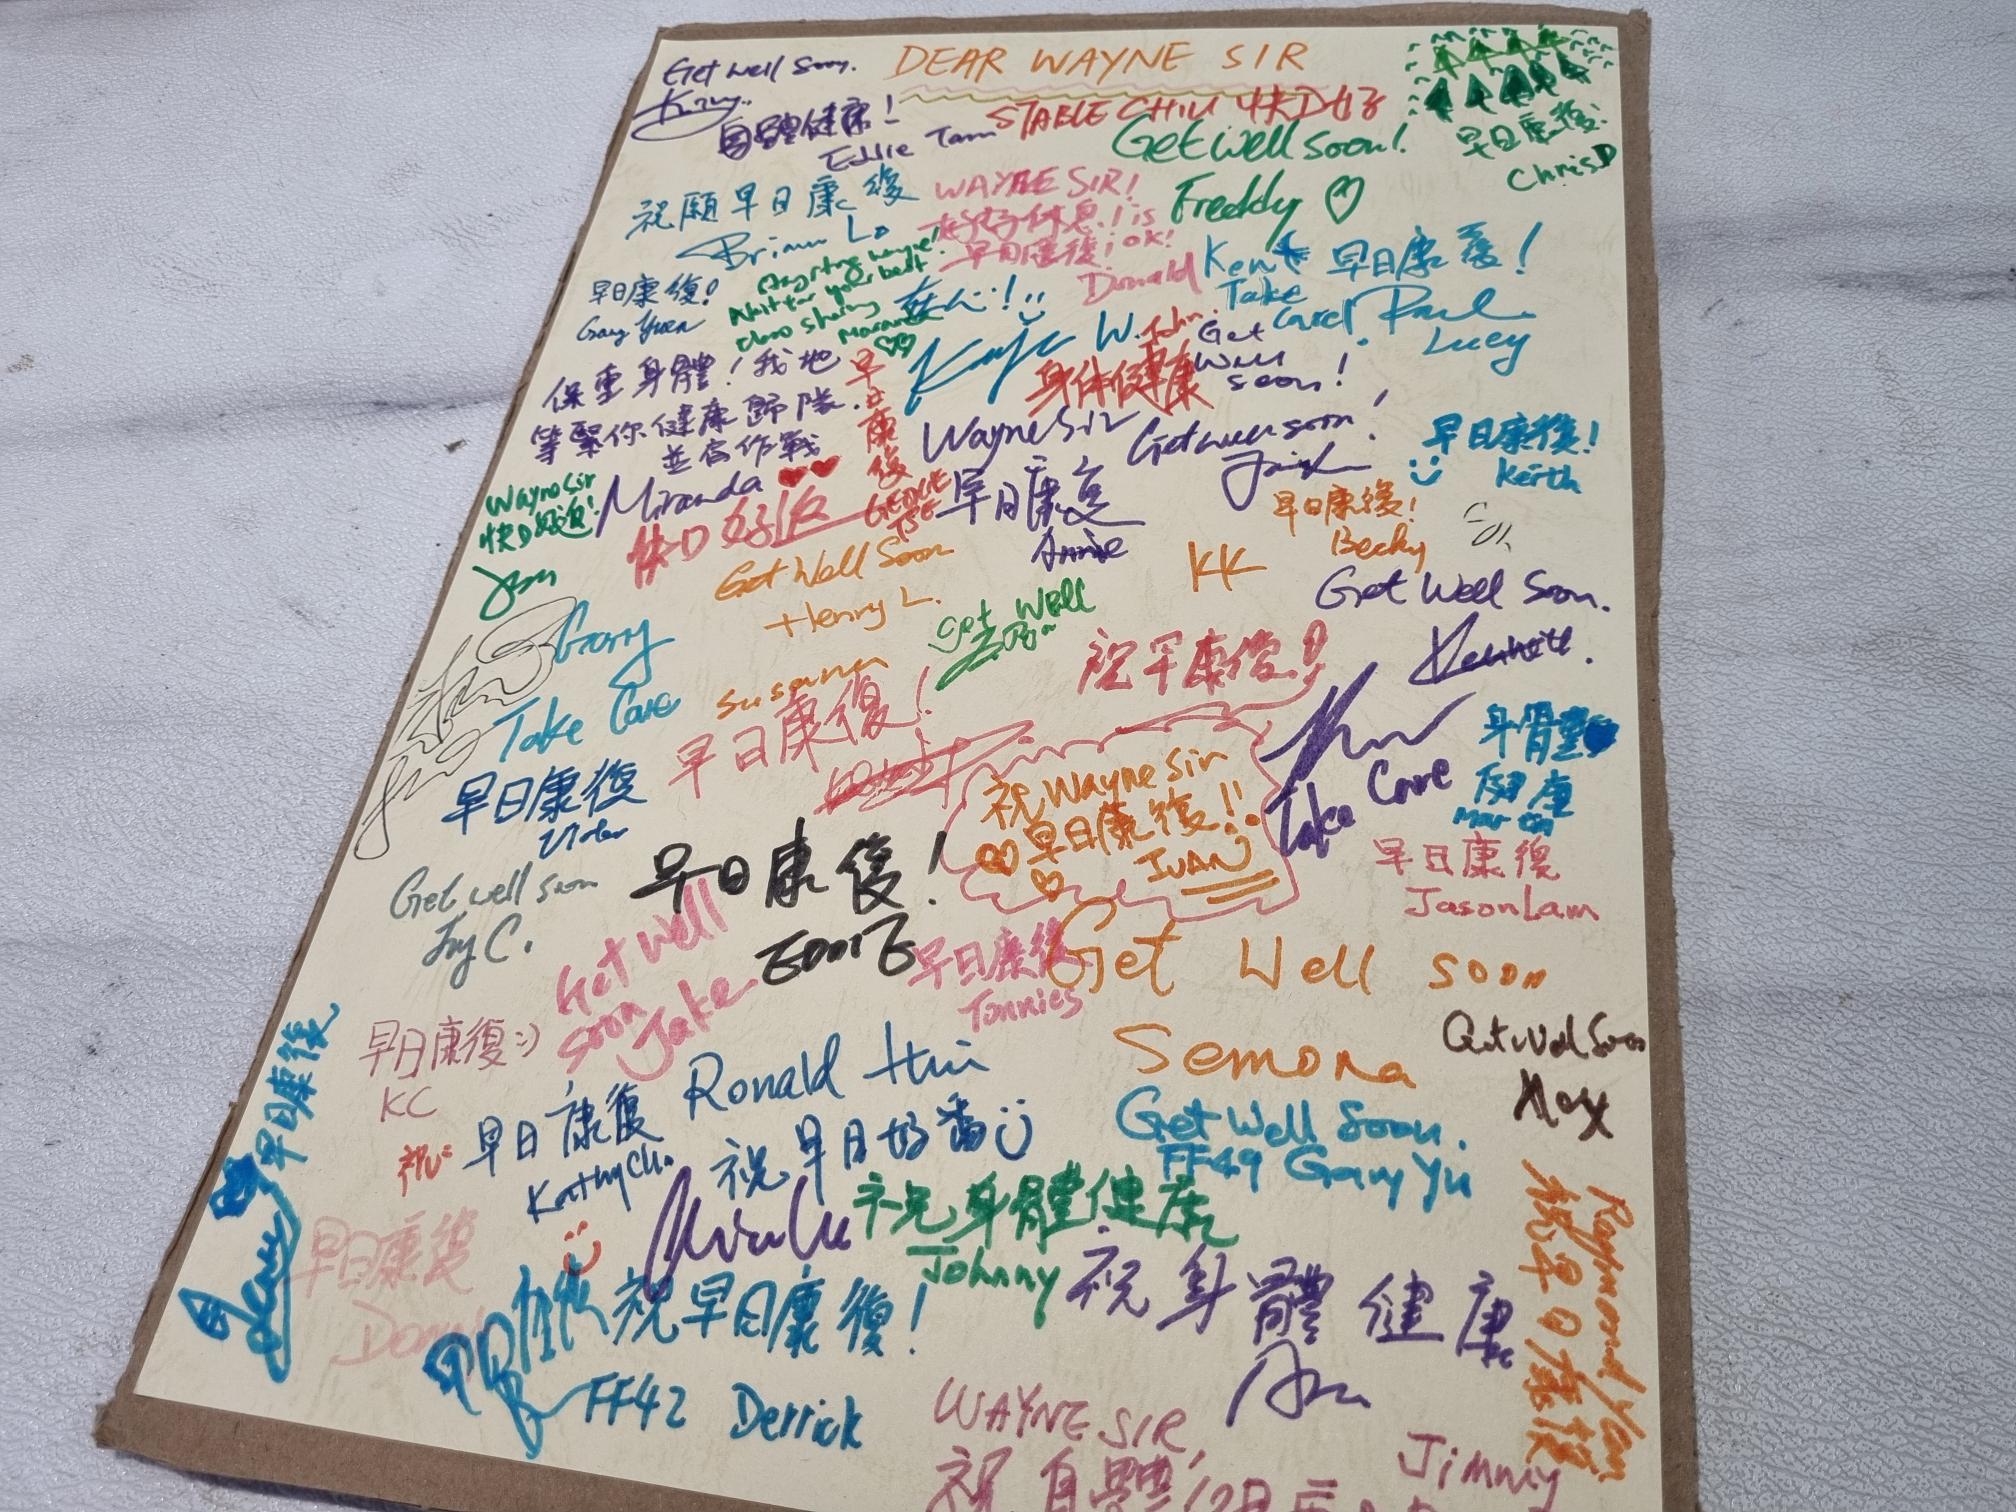 Get well soon.
DEAR WAYNE SIR
身體健康!
Eddie Tam
STABLE CHIU 快D好
Get well soon!
Freddy
早日康復!
ChrisD
祝願早日康復
Brian Lo
WAYNE SIR!
好好休息!
早日康復!
Donald
Kent
Take
Care!
早日康復!
Paul
Lucey
早日康復!
Gary Yuen
W.
John
Get
Well
soon!
身体健康
保重身體!我地
等緊你健康歸隊.
並肩作戰
Miranda
早日康復
GEORGE
TSE
Wayne Sir
早日康復
Annie
Get well soon!
早日康復!
Keith
Wayne Sir
快D好返!
快D好返
早日康復!
Becky
Get Well Soon
Henry L.
KK
Get Well Soon.
Kenneth.
Gary
Take Care
Get Well
Soon
Susanna
早日康復!
祝早康復!
早日康復
祝Wayne Sir
早日康復!!
IVAN
Take Care
身體
健康
Martin
早日康復
Jason Lam
早日康復!
Get well soon
Get Well
soon
Jake
早日康復
Tonnies
Get Well soon
Semona
早日康復:)
KC
Get Well Soon
Alex
早日康復
Ronald Hui
祝早日好番
早日康復
Kathy Chu
祝
Get Well Soon.
FF49 Gary Yu
祝身體健康
Johnny
早日康復
祝早日康復!
FF42 Derrick
祝身體健康
Raymond Yan
祝早日康復
WAYNE SIR,
祝身體
Jimmy